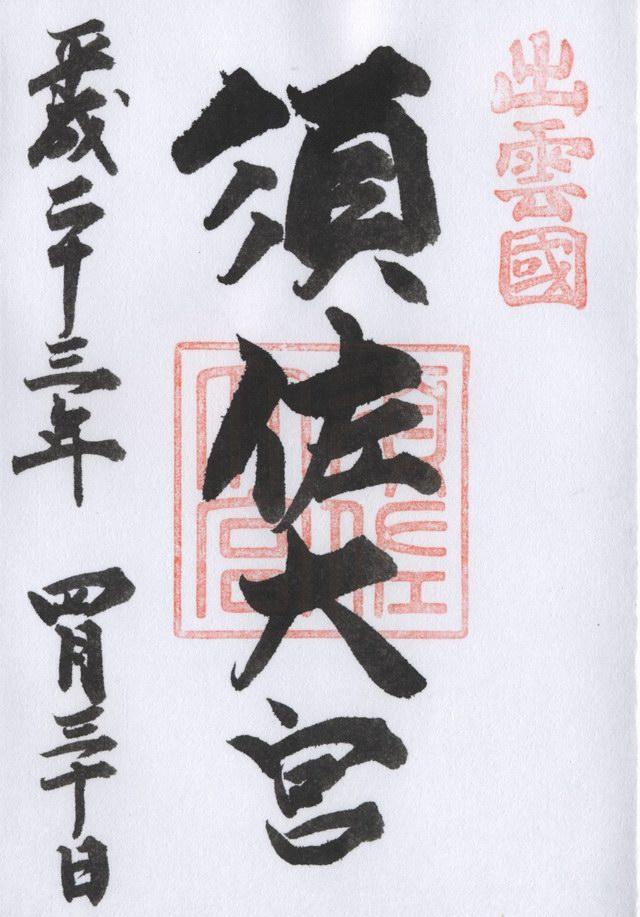 出雲國
須佐大宮
須佐大宮
平成二十三年 四月三十日